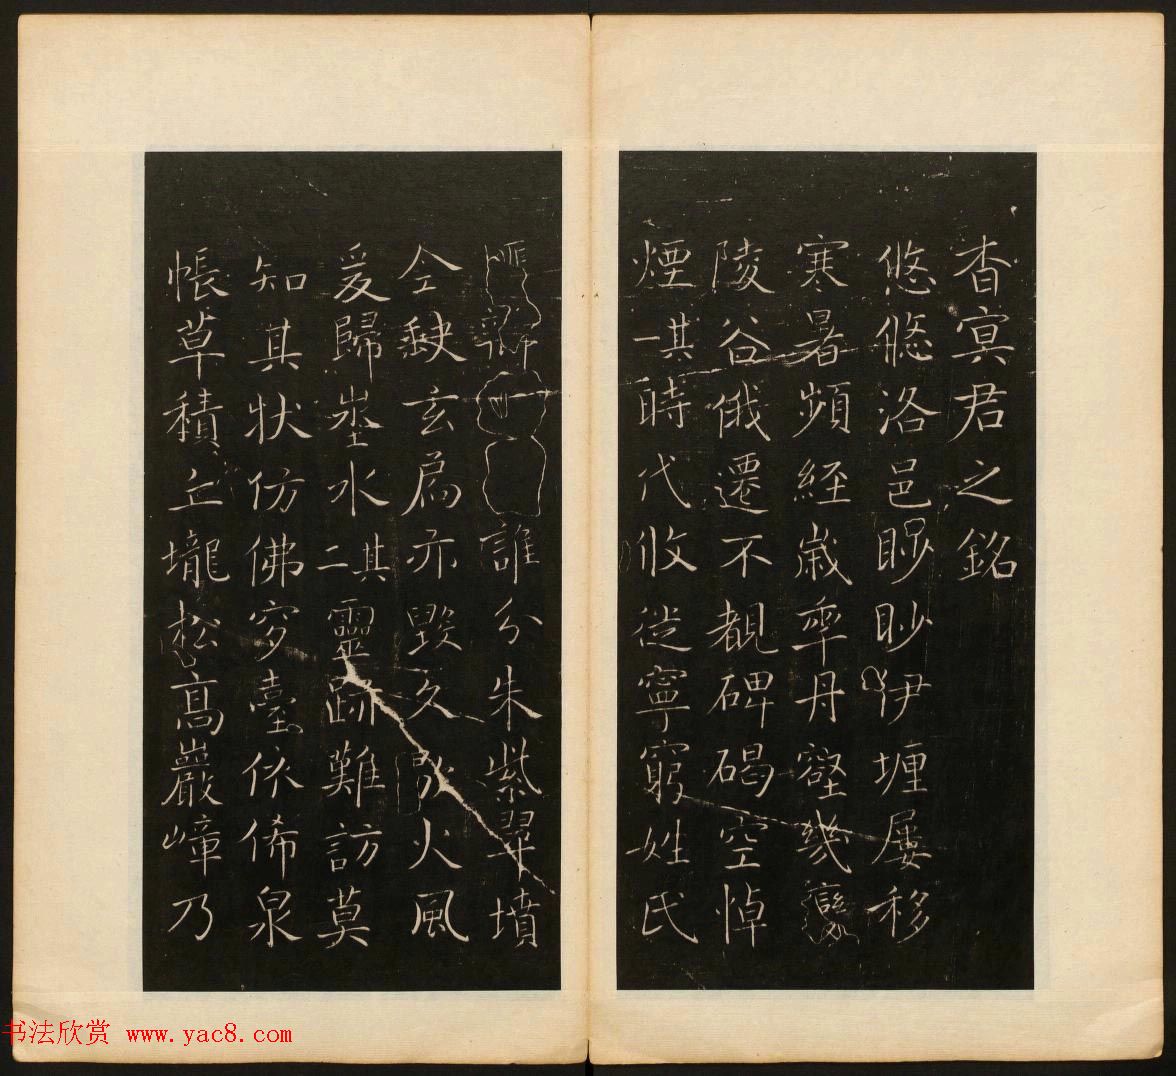 杳冥君之銘
悠悠洛邑眇眇伊壥屢移
寒暑頻經歲年丹壑幾變
陵谷俄遷不覩碑碣空悼
煙其一時代攸徙寧窮姓氏
匪辯誰分朱紫翠墳
全缺玄扃亦毀久火風
爰歸埊水其二靈跡難訪莫
知其狀仿佛穸臺依俙泉
帳草積丘壠松高巖嶂乃
书法欣赏 www.yac8.com